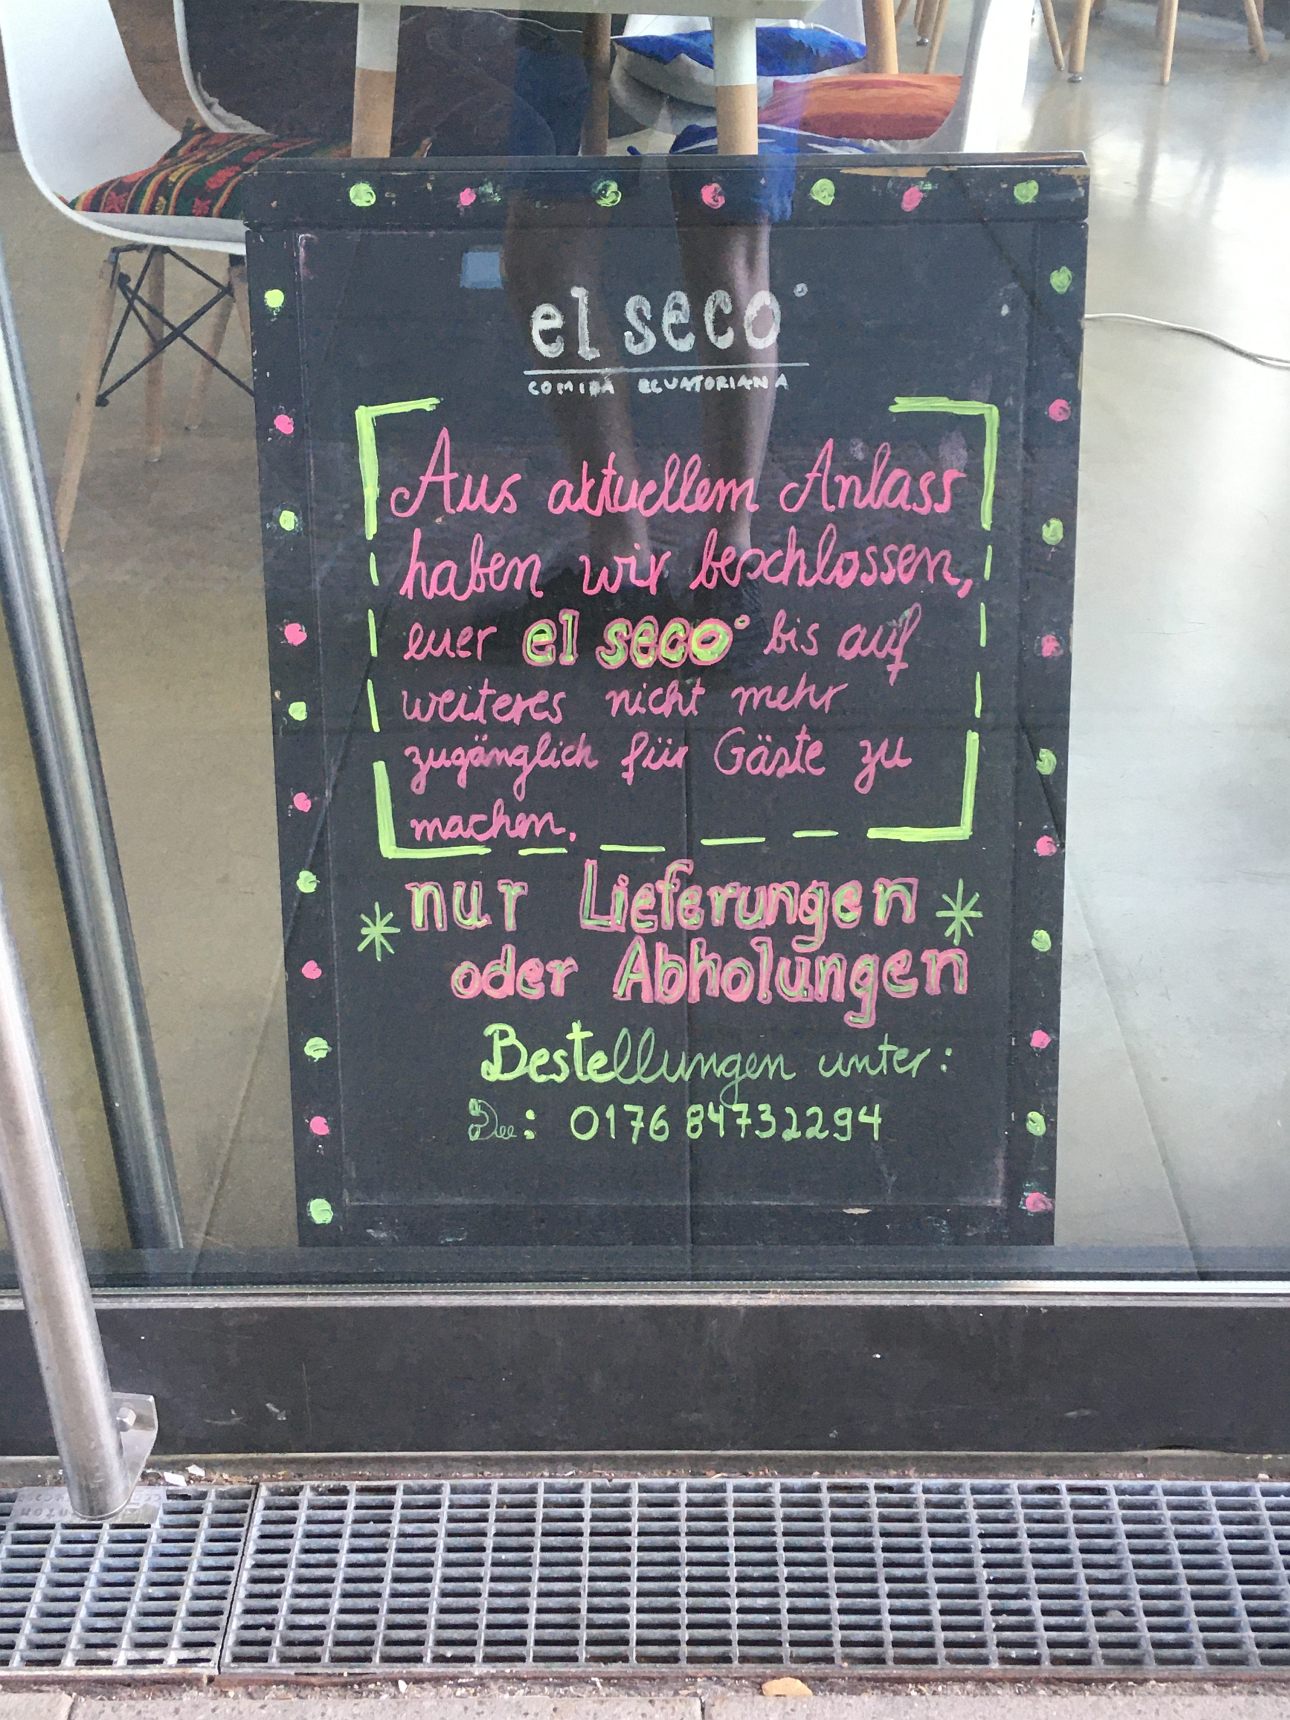 el seco°
COMIDA ECUATORIANA
Aus aktuellem Anlass
haben wir beschlossen,
euer el seco° bis auf
weiteres nicht mehr
zugänglich für Gäste zu
machen.
* nur Lieferungen *
oder Abholungen
Bestellungen unter:
: 0176 84732294